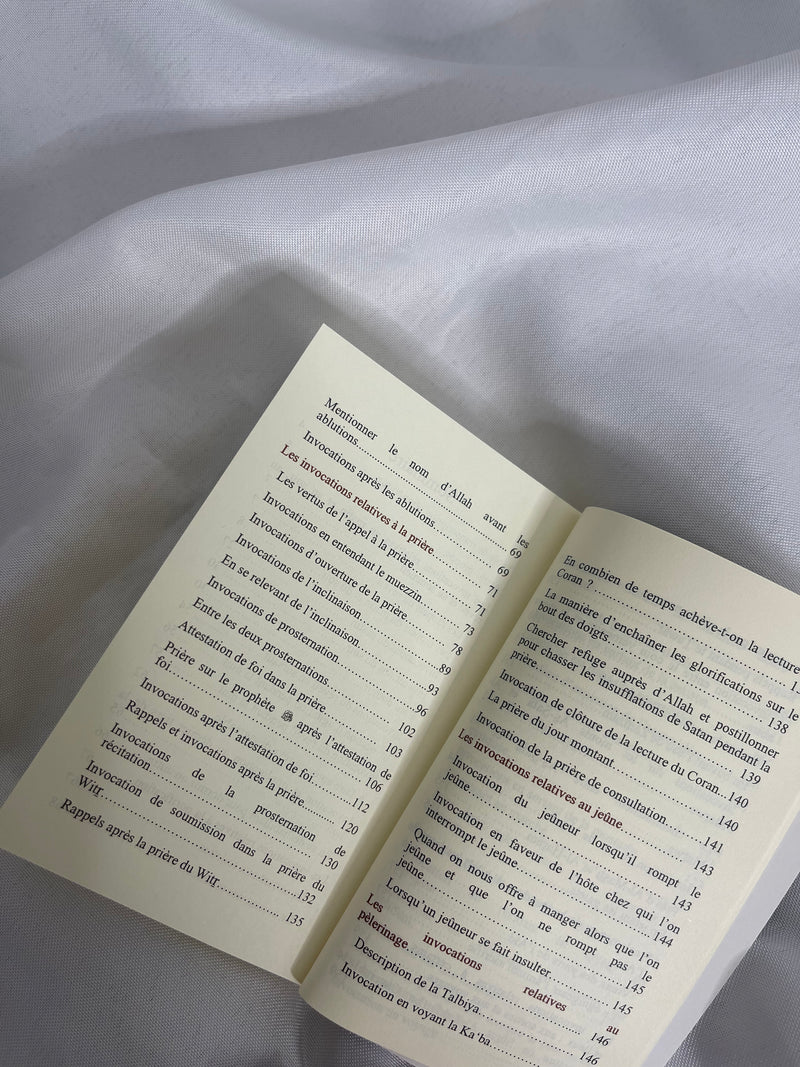 Mentionner le nom d'Allah avant les
ablutions.......................................69
Invocations après les ablutions............ 69
Les invocations relatives à la prière....... 71
Les vertus de l'appel à la prière............ 71
Invocations en entendant le muezzin....... 73
Invocations d'ouverture de la prière....... 78
Invocations de l'inclinaison................89
En se relevant de l'inclinaison.............93
Invocations de prosternation................96
Entre les deux prosternations............. 102
Attestation de foi dans la prière.......... 103
Prière sur le prophète ﷺ après l'attestation de
foi............................................ 106
Invocations après l'attestation de foi......112
Rappels et invocations après la prière..... 120
Invocations de la prosternation de
récitation..................................... 130
Invocation de soumission dans la prière du
Witr............................................132
Rappels après la prière du Witr............ 135
En combien de temps achève-t-on la lecture
Coran ?
La manière d'enchaîner les glorifications sur le
bout des doigts................................ 138
Chercher refuge auprès d'Allah et postillonner
pour chasser les insufflations de Satan pendant la
prière......................................... 139
Invocation de clôture de la lecture du Coran..140
La prière du jour montant.................. 140
Invocation de la prière de consultation.... 141
Les invocations relatives au jeûne......... 143
Invocation du jeûneur lorsqu'il rompt le
jeûne.......................................... 143
Invocation en faveur de l'hôte chez qui l'on
interrompt le jeûne............................ 144
Quand on nous offre à manger alors que l'on
jeûne et que l'on ne rompt pas le
jeûne...........................................145
Lorsqu'un jeûneur se fait insulter......... 145
Les invocations relatives au
pèlerinage..................................... 146
Description de la Talbiya.................. 146
Invocation en voyant la Ka'ba